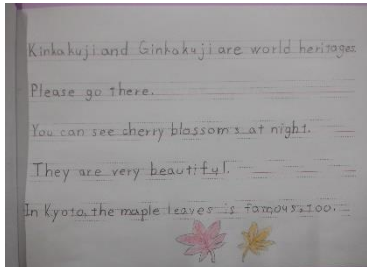 Kinkakuji and Ginkakuji are world heritages
Please go there.
You can see cherry blossoms at night.
They are very beautiful.
In Kyoto, the maple leaves is famous, too.